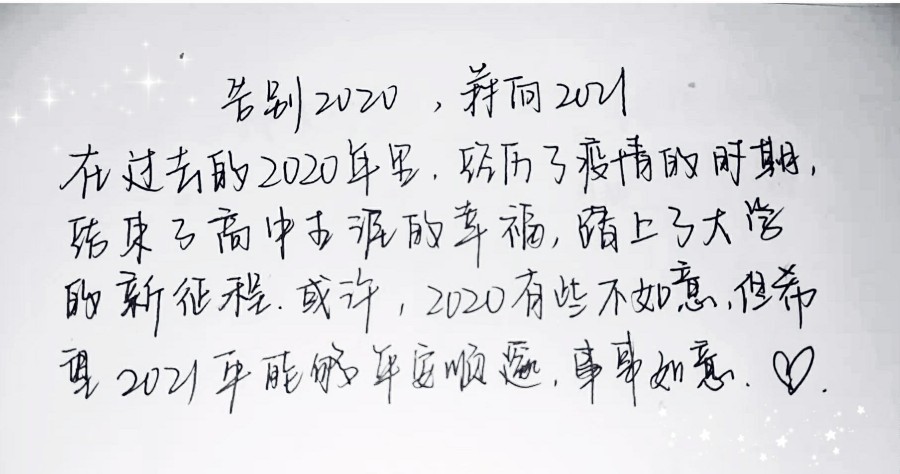 告别2020，走向2021
在过去的2020年里，经历了疫情的时期，
结束了高中生涯的幸福，踏上了大学
的新征程。或许，2020有些不如意，但希
望2021年能够平安顺遂，事事如意。♡.